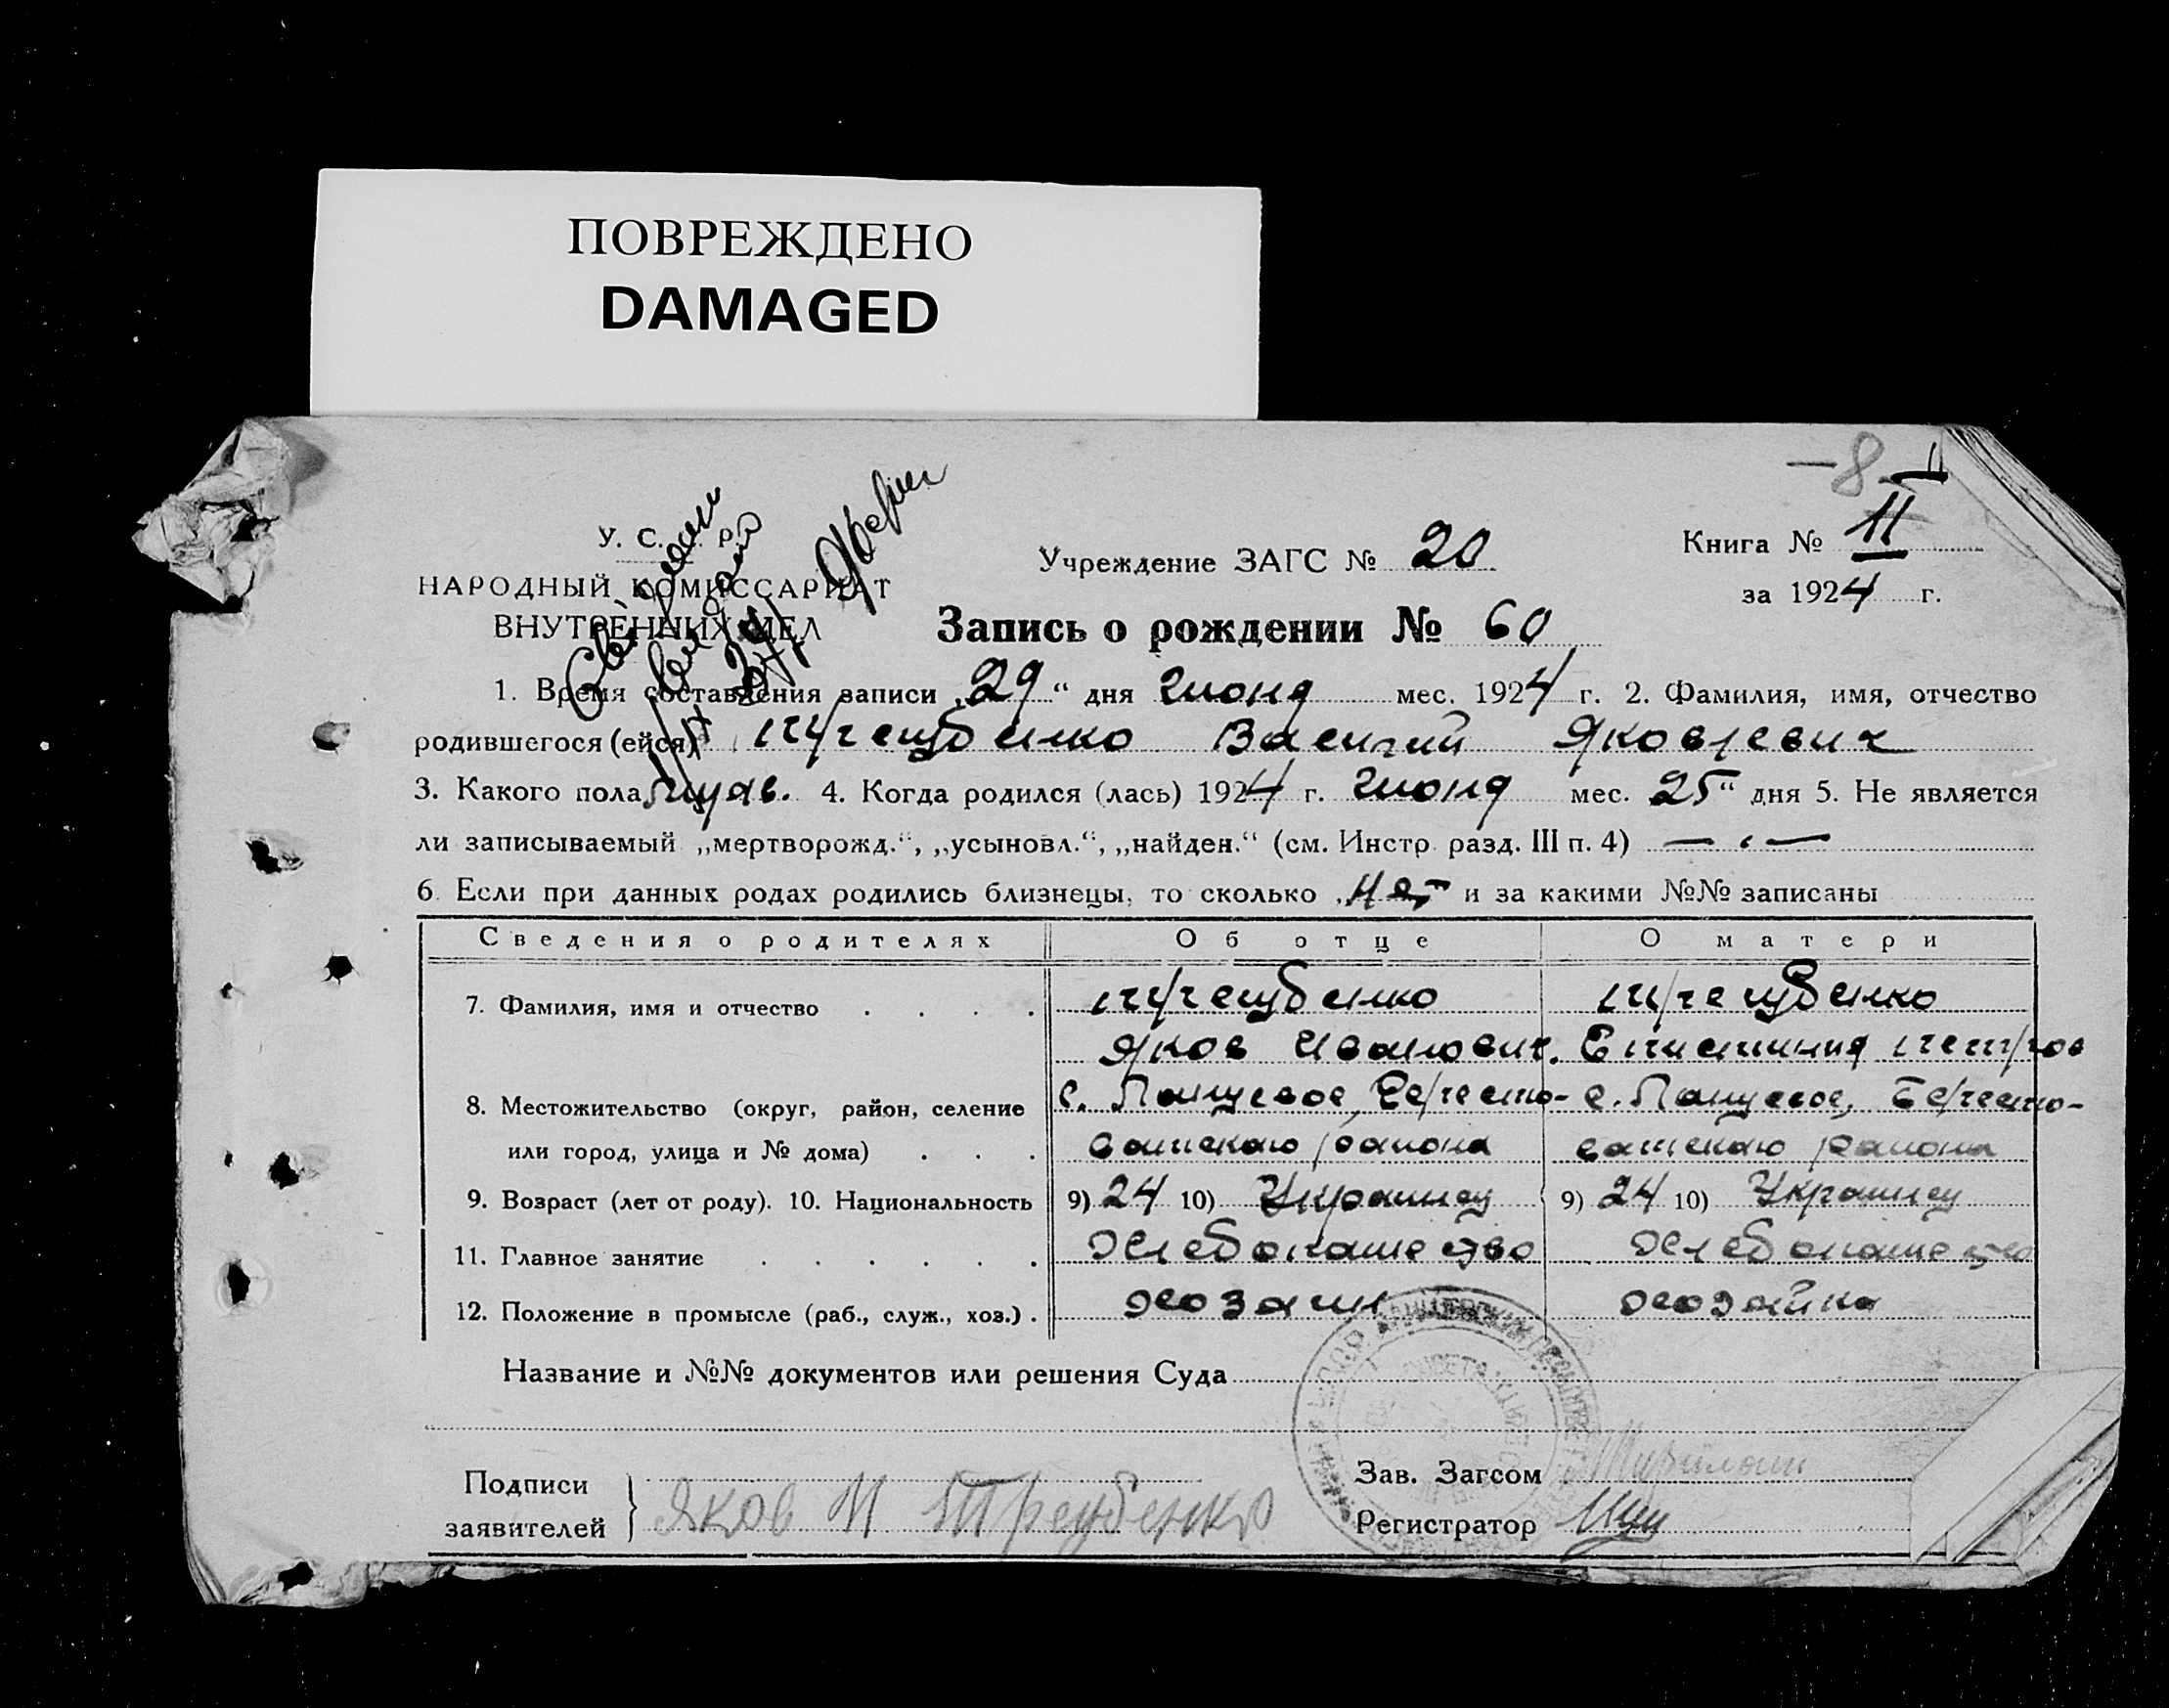 ПОВРЕЖДЕНО
DAMAGED
— 8 —
У. С. Р.
НАРОДНЫЙ КОМИССАРИАТ
ВНУТРЕННИХ ДЕЛ
Учреждение ЗАГС № 20
Книга № 11
за 1924 г.
Запись о рождении № 60
1. Время составления записи „29“ дня Июня мес. 1924 г. 2. Фамилия, имя, отчество
родившегося (ейся) Трегубенко Василий Яковлевич
3. Какого пола муж. 4. Когда родился (лась) 1924 г. Июня мес. 25“ дня 5. Не является
ли записываемый „мертворожд.“, „усыновл.“, „найден.“ (см. Инстр. разд. III п. 4) —
6. Если при данных родах родились близнецы, то сколько нет и за какими №№ записаны
Сведения о родителях Об отце О матери
7. Фамилия, имя и отчество Трегубенко Трегубенко
Яков Иванович. Петров
8. Местожительство (округ, район, селение с. Бересто- с. Бересто-
или город, улица и № дома) ватскаго района ватскаго района
9. Возраст (лет от роду). 10. Национальность 9) 24 10) Украинец 9) 24 10) Украинец
11. Главное занятие Хлебопашество Хлебопашество
12. Положение в промысле (раб., служ., хоз.) хозаин хозайка
Название и №№ документов или решения Суда
Подписи
заявителей Яков И Трегубенко
Зав. Загсом
Регистратор